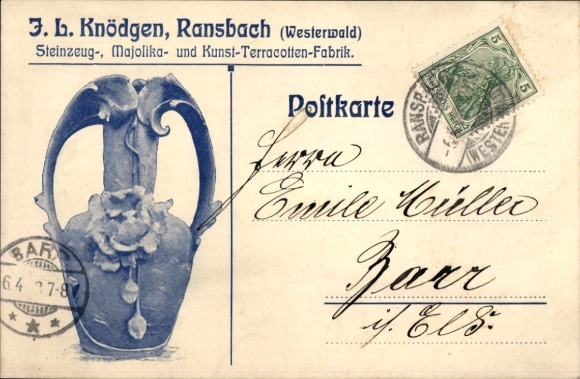 J. L. Knödgen, Ransbach (Westerwald)
Steinzeug-, Majolika- und Kunst-Terracotten-Fabrik.
Postkarte
5 5
RANSB
(WESTER
Herrn
Emile Müller
Barr
i/ Els.
BARR
6.4 7-8